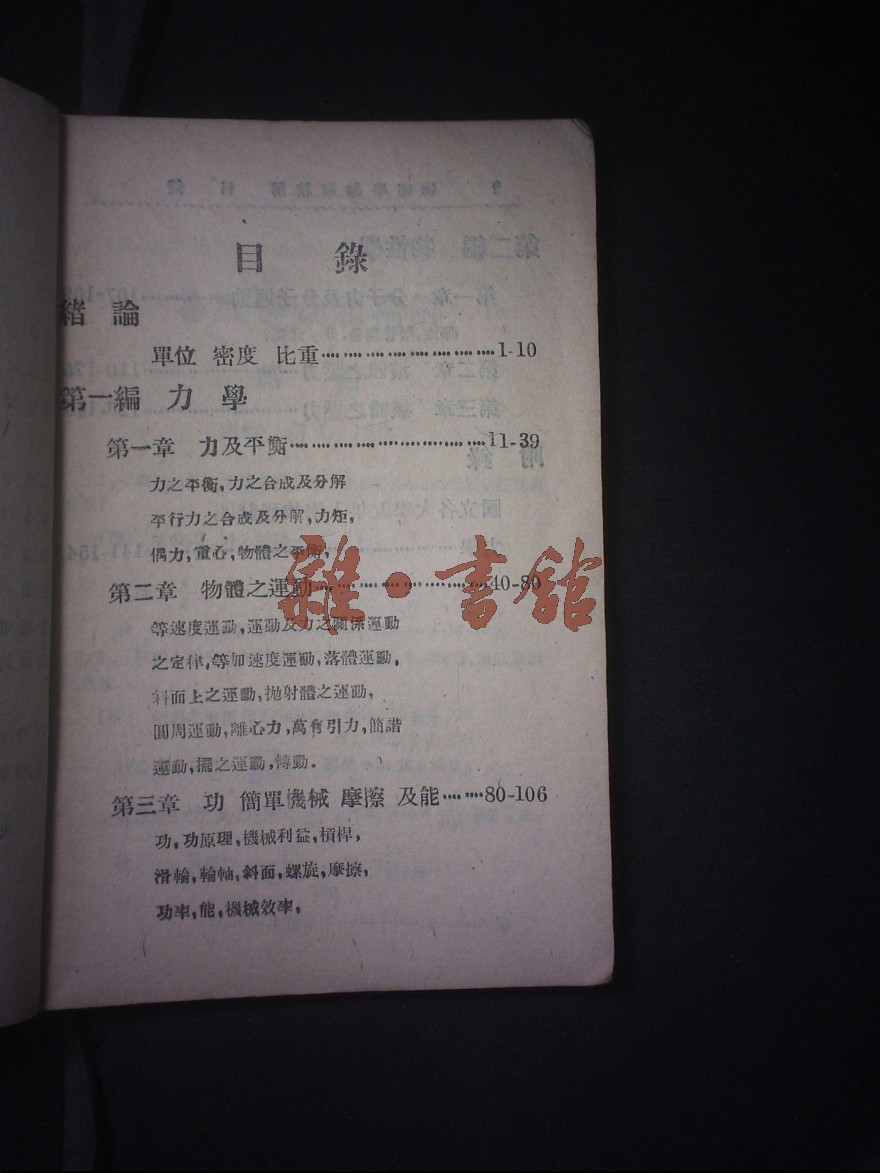 目 錄
緒 論
單位 密度 比重…………………………1-10
第一編 力 學
第一章 力及平衡…………………………11-39
力之平衡,力之合成及分解
平行力之合成及分解,力矩,
偶力,重心,物體之平衡,
第二章 物體之運動…………………………40-80
等速度運動,運動及力之關係運動
之定律,等加速度運動,落體運動,
斜面上之運動,拋射體之運動,
圓周運動,離心力,萬有引力,簡諧
運動,擺之運動,轉動.
第三章 功 簡單機械 摩擦 及能………80-106
功,功原理,機械利益,槓桿,
滑輪,輪軸,斜面,螺旋,摩擦,
功率,能,機械效率,
雜·書館